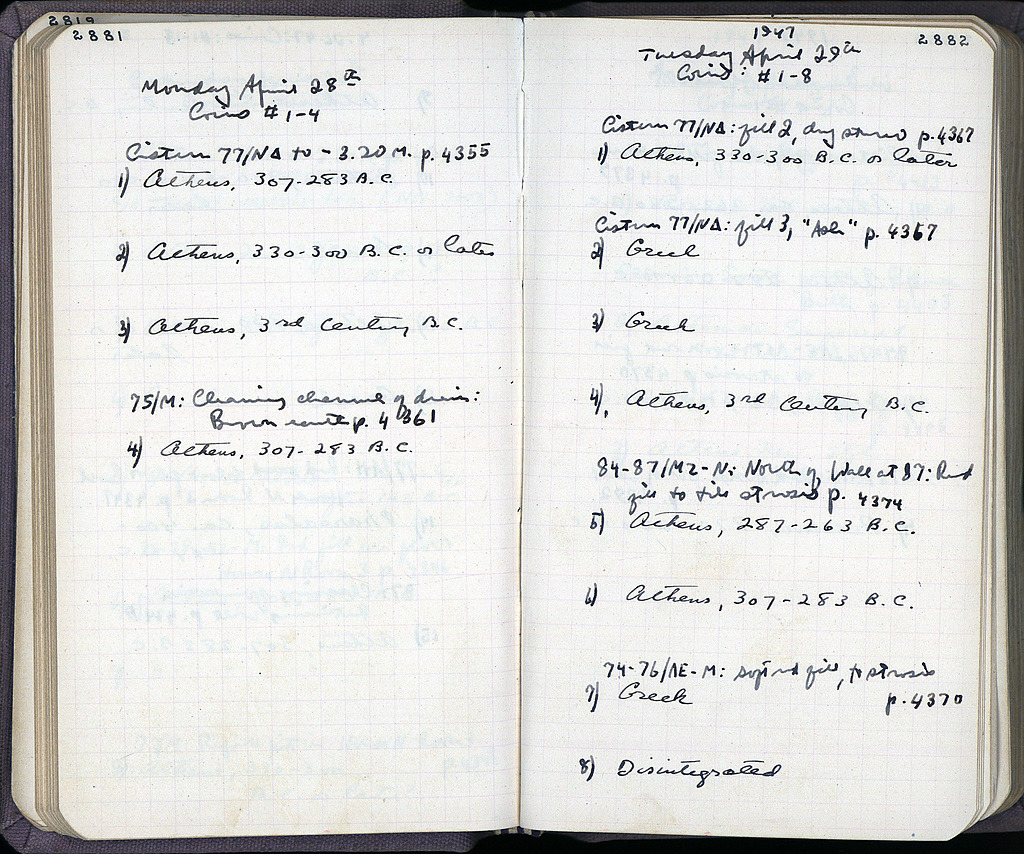 2819
2881
Monday April 28th
Coins #1-4
Cistern 77/ΝΔ to -3.20 M. p. 4355
1) Athens, 307-283 B.C.
2) Athens, 330-300 B.C. or later
3) Athens, 3rd Century B.C.
75/M: Cleaning channel of drain:
Brown earth p. 4361
4) Athens, 307-283 B.C.
2882
1947
Tuesday April 29th
Coins: #1-8
Cistern 77/ΝΔ: fill 2, dug stereo p. 4367
1) Athens, 330-300 B.C. or later
Cistern 77/ΝΔ: fill 3, "Ash" p. 4367
2) Greek
3) Greek
4) Athens, 3rd Century B.C.
84-87/ΜΖ-Ν: North of Wall at 87: Red
fill to tile strosis p. 4374
5) Athens, 287-263 B.C.
6) Athens, 307-283 B.C.
74-76/ΛΕ-Μ: soft red fill, to strosis
7) Greek p. 4370
8) Disintegrated